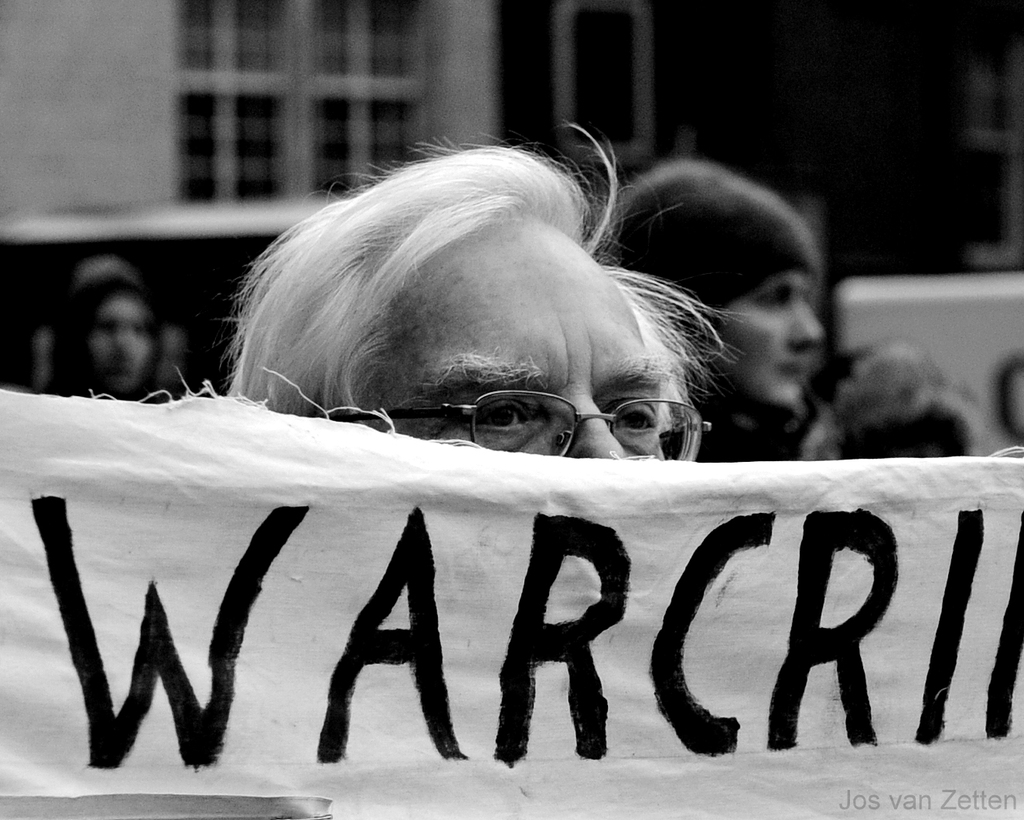 WARCRI
Jos van Zetten